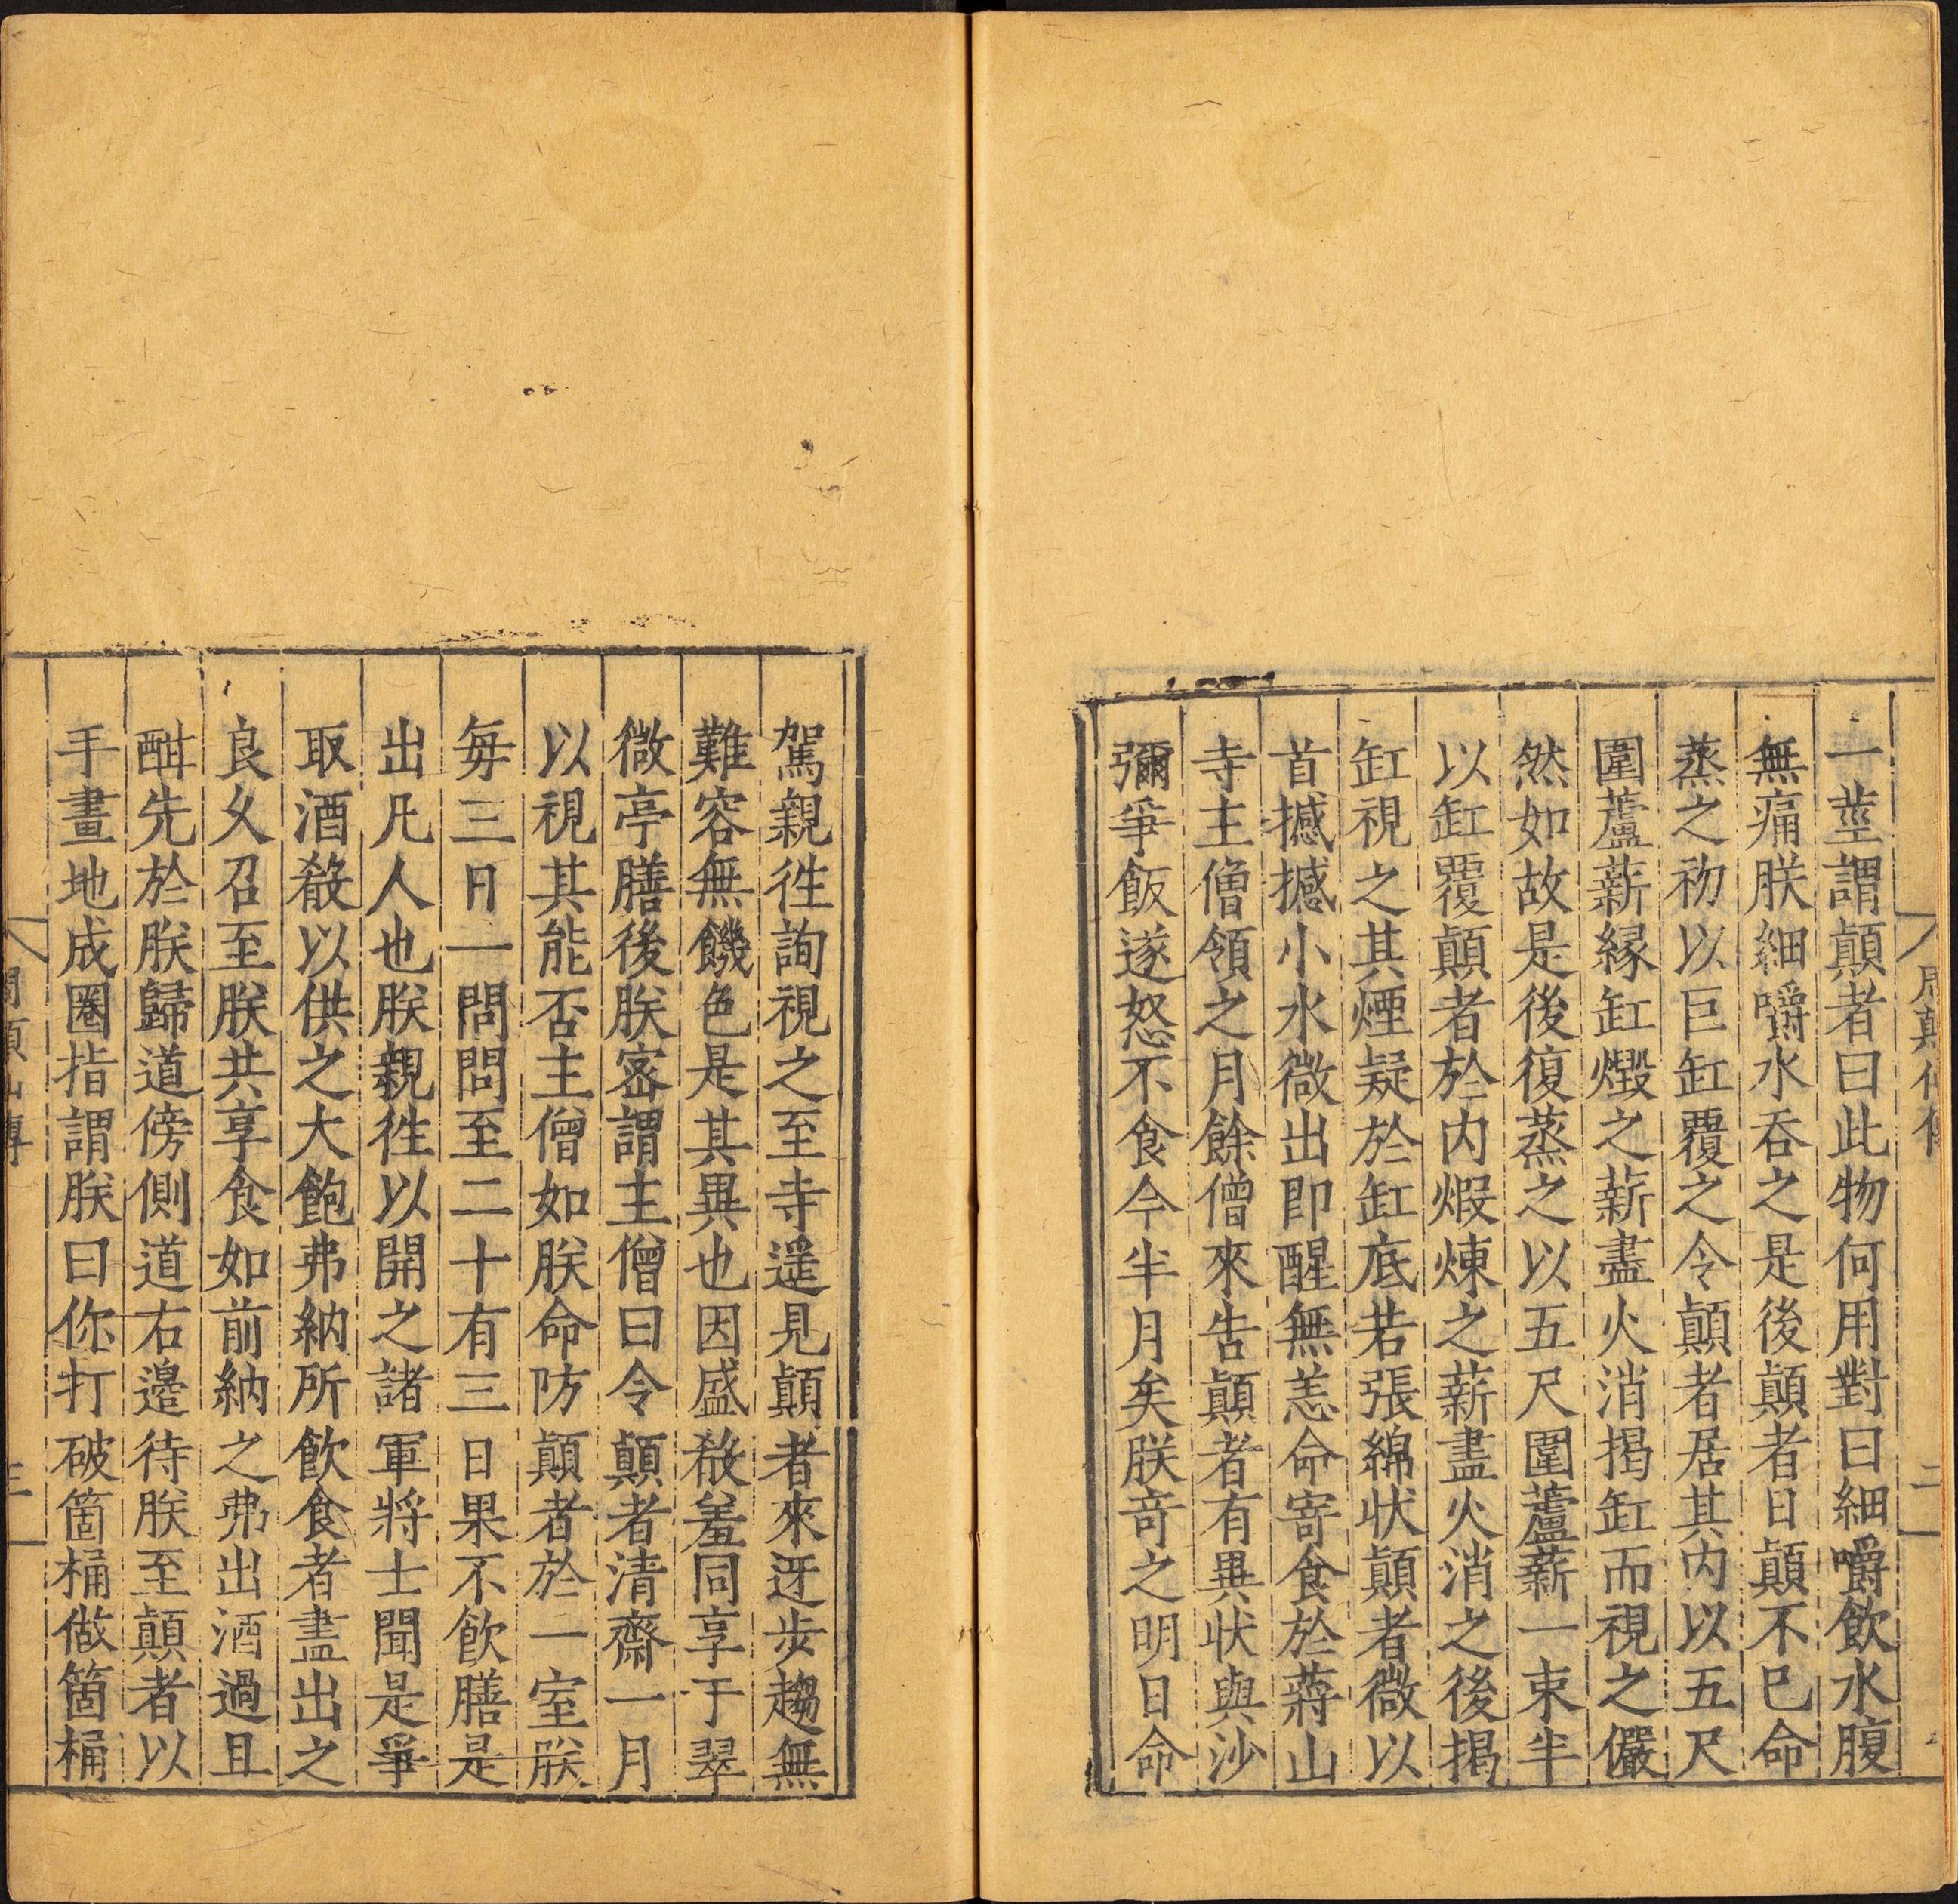 周顛仙傳
二
一莖謂顛者曰此物何用對曰細嚼飲水腹
無痛朕細嚼水吞之是後顛者日顛不已命
蒸之初以巨缸覆之令顛者居其內以五尺
圍蘆薪緣缸煅之薪盡火消揭缸而視之儼
然如故是後復蒸之以五尺圍蘆薪一束半
以缸覆顛者於內煆煉之薪盡火消之後揭
缸視之其煙凝於缸底若張綿狀顛者微以
首撼撼小水微出即醒無恙命寄食於蔣山
寺主僧領之月餘僧來告顛者有異狀與沙
彌爭飯遂怒不食今半月矣朕奇之明日命
駕親徃詢視之至寺遥見顛者來迓步趨無
難容無饑色是其異也因盛殽羞同享于翠
微亭膳後朕宻謂主僧曰令顛者清齋一月
以視其能否主僧如朕命防顛者於一室朕
每三日一問問至二十有三日果不飲膳是
出凡人也朕親徃以開之諸軍將士聞是爭
取酒殽以供之大飽弗納所飲食者盡出之
良乆召至朕共享食如前納之弗出酒過且
酣先於朕歸道傍側道右邉待朕至顛者以
手畫地成圈指謂朕曰你打破箇桶做箇桶
周顛仙傳
三